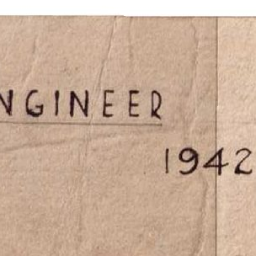 NGINEER
1942